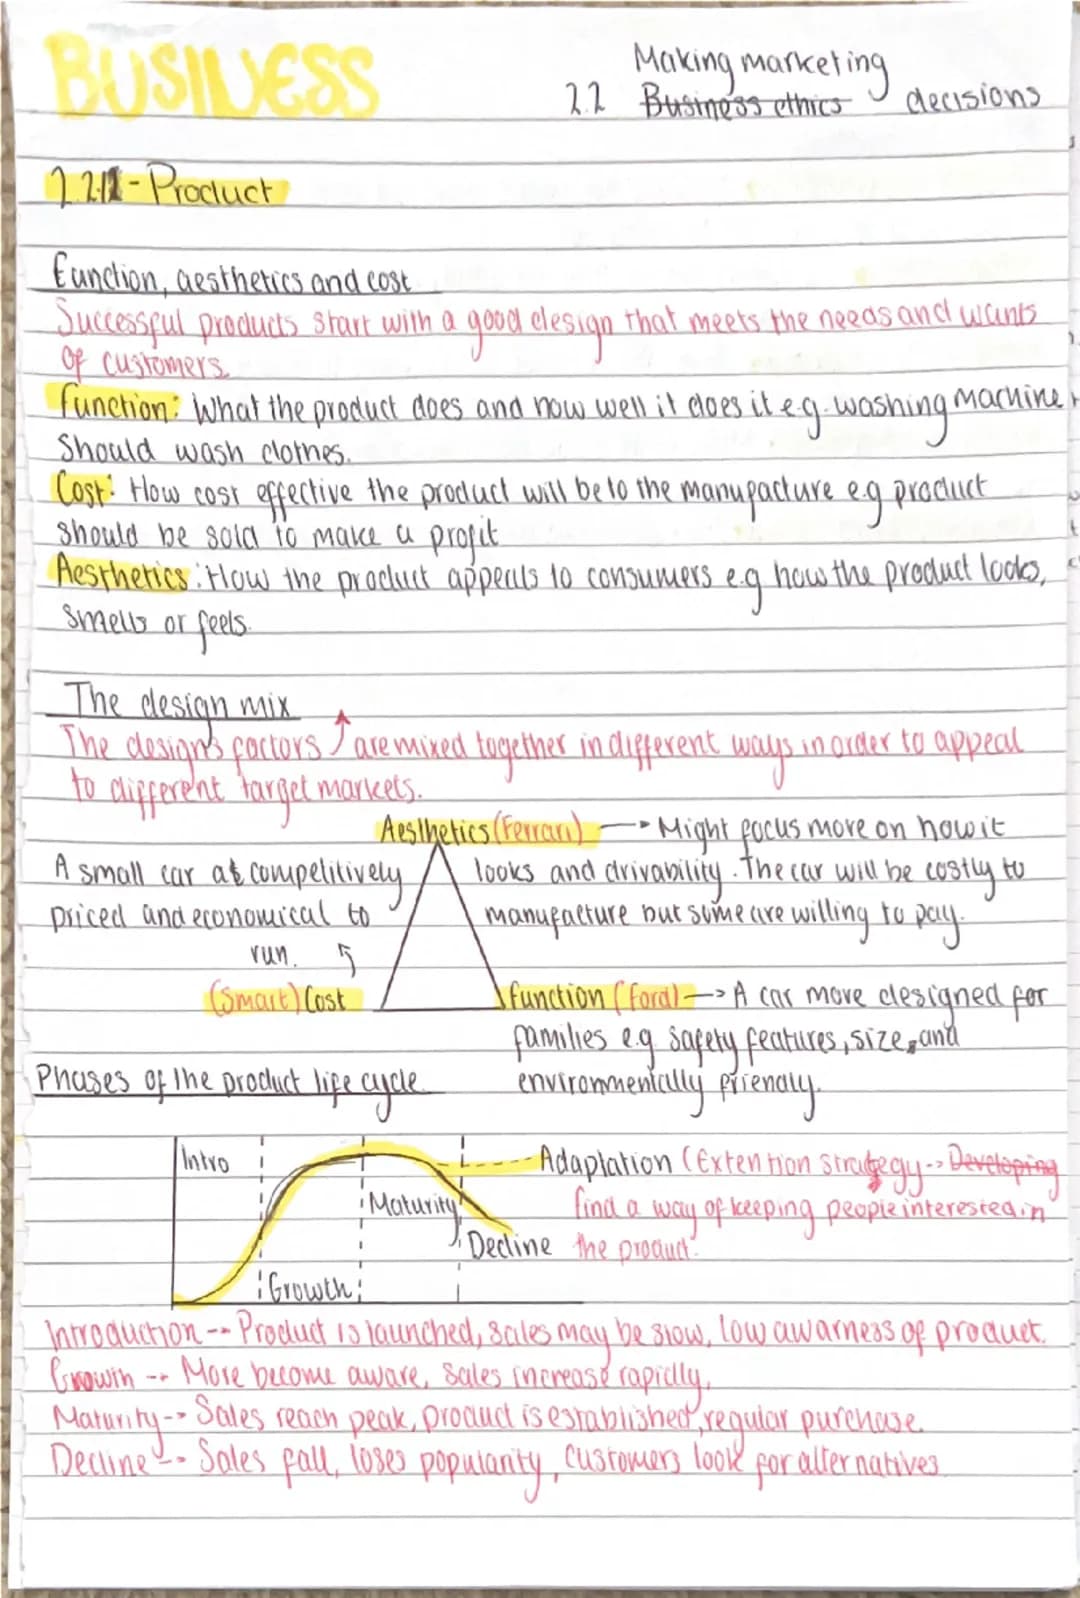 BUSINESS
Making marketing
2.2 Business ethics decisions
2.2.1 - Product
Function, aesthetics and cost
Successful products start with a good design that meets the needs and wants
of customers.
Function: What the product does and how well it does it e.g. washing machine
Should wash clothes.
Cost: How cost effective the product will be to the manufacture e.g product
should be sold to make a profit
Aesthetics: How the product appeals to consumers e.g how the product looks,
smells or feels.
The design mix
The designs factors are mixed together in different ways in order to appeal
to different target markets.
Aesthetics (Ferrari) --> Might focus more on how it
looks and drivability. The car will be costly to
manufacture but some are willing to pay.
A small car at competitively
priced and economical to
run.
(Smart) Cost
Function (Ford) --> A car more designed for
families e.g safety features, size, and
environmentally friendly.
Phases of the product life cycle
Intro
Growth
Maturity
Decline
Adaptation (Extention strategy --> Developing
find a way of keeping people interested in
the product.
Introduction --> Product is launched, sales may be slow, low awarness of product.
Growth --> More become aware, sales increase rapidly,
Maturity --> Sales reach peak, product is established, regular purchase.
Decline --> Sales fall, loses popularity, customers look for alternatives